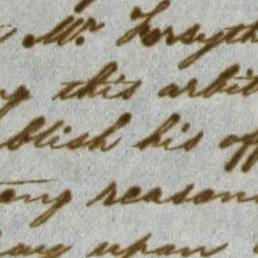 Mr. Forsyth
g this arbit
blish his off
ong reason
lay upon